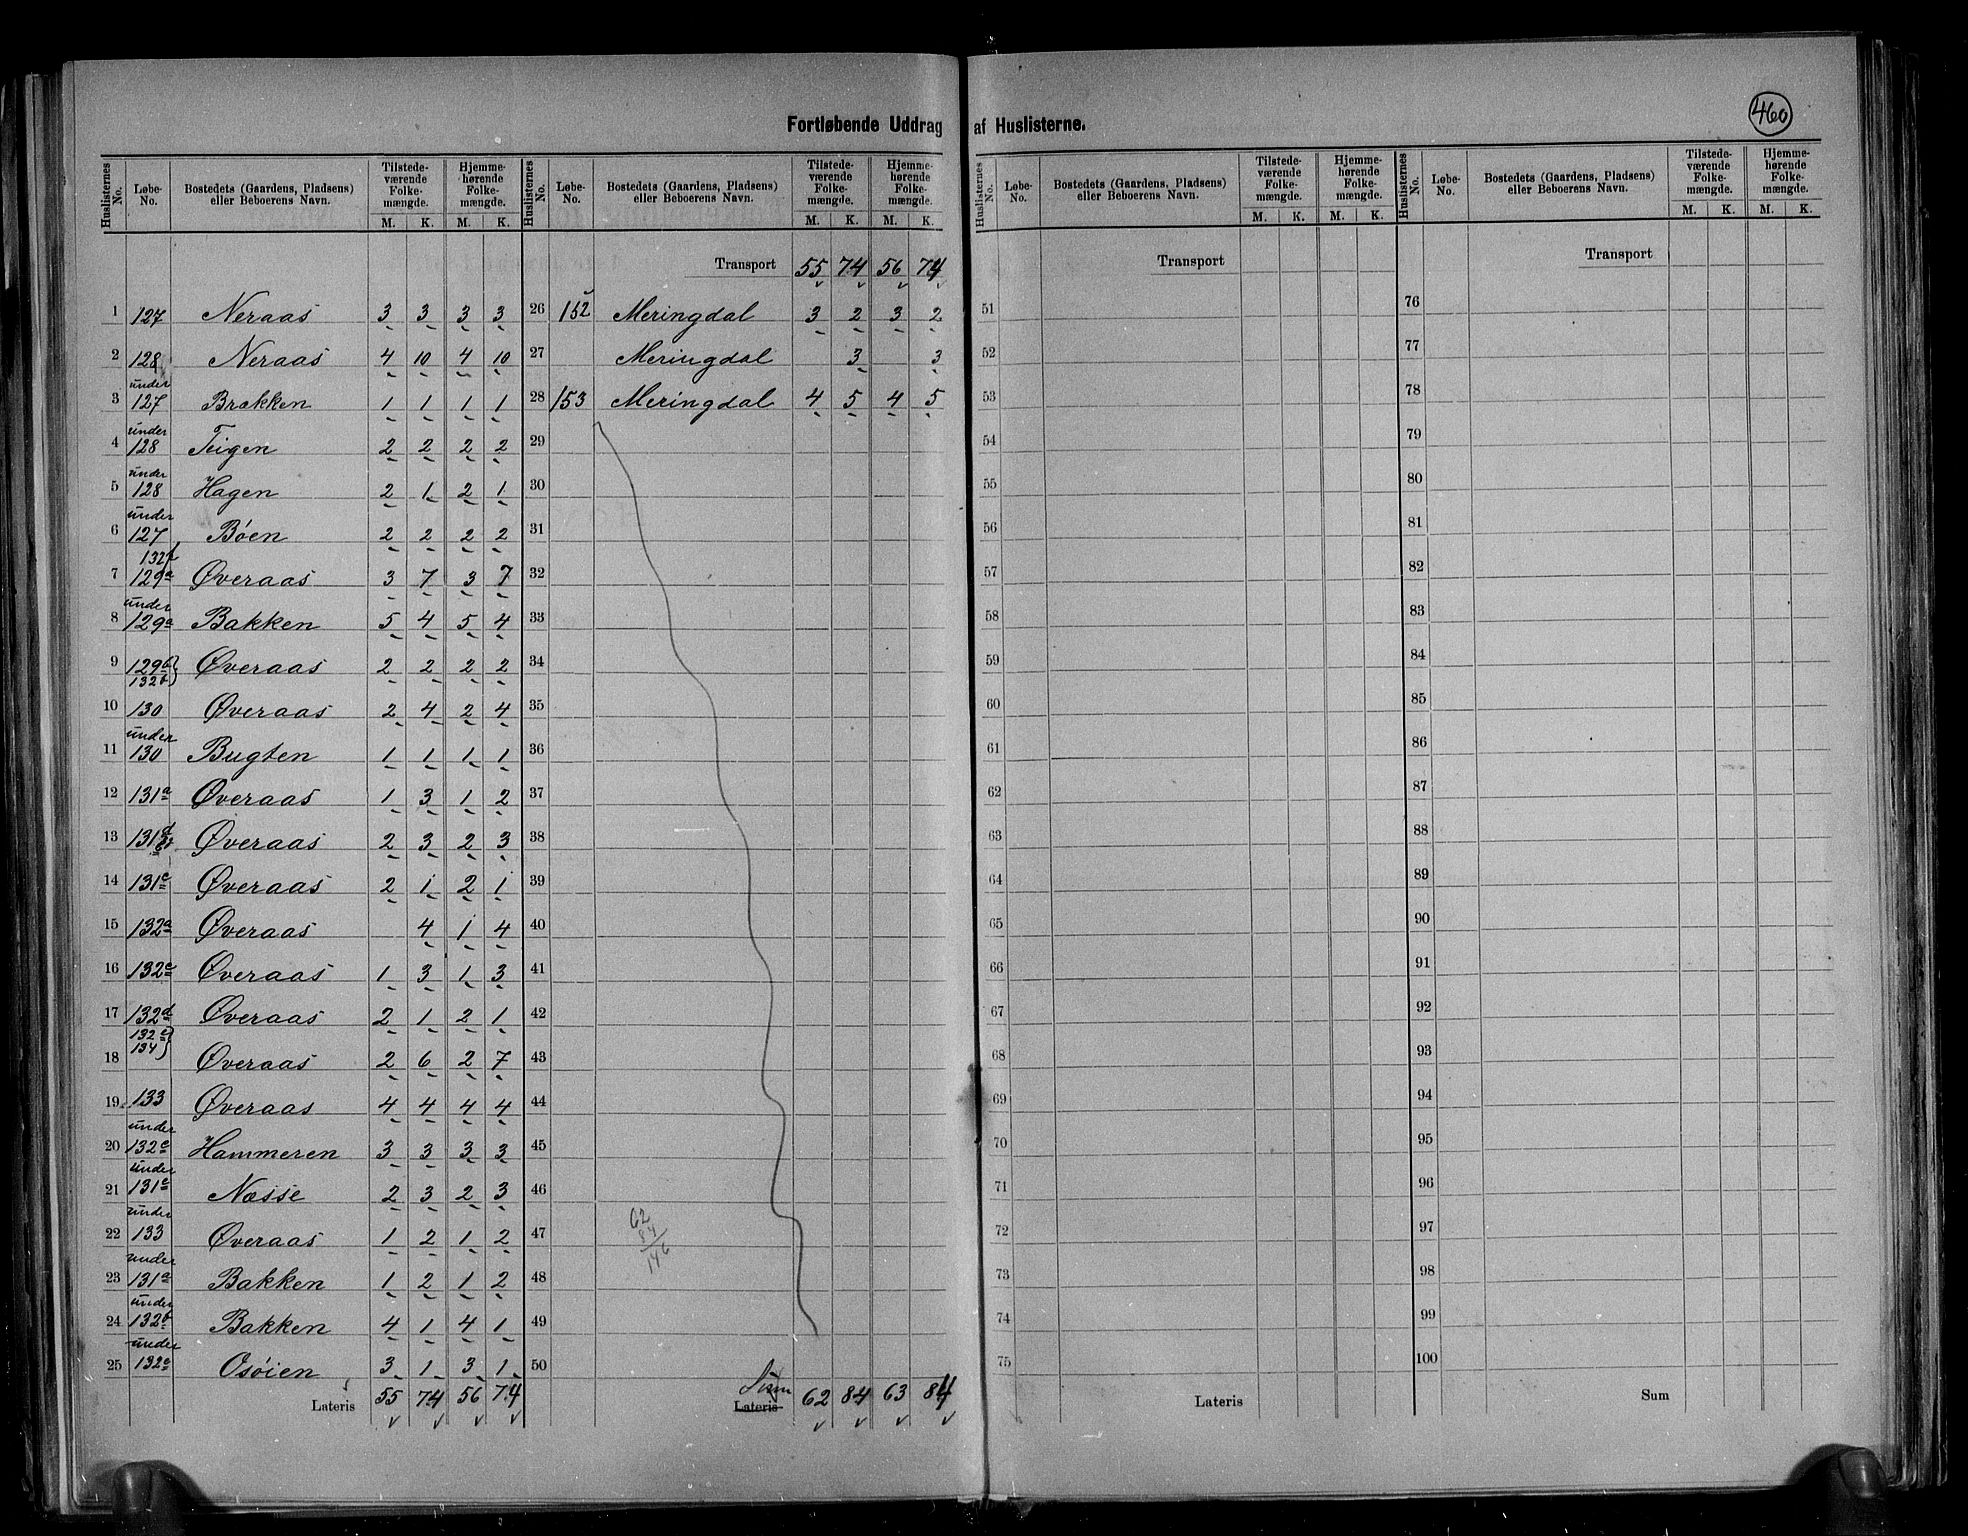 460
Fortløbende Uddrag af Huslisterne.
Huslisternes No. | Løbe-No. | Bostedets (Gaardens, Pladsens) eller Beboerens Navn. | Tilstedeværende Folkemængde. M. K. | Hjemmehørende Folkemængde. M. K.
1 127 Neraas 3 3 3 3
2 128 Neraas 4 10 4 10
3 under 127 Brækken 1 1 1 1
4 under 128 Teigen 2 2 2 2
5 under 128 Hagen 2 1 2 1
6 under 127 Böen 2 2 2 2
7 132f 129a Øveraas 3 7 3 7
8 under 129a Bakken 5 4 5 4
9 129b 132b } Øveraas 2 2 2 2
10 130 Øveraas 2 4 2 4
11 under 130 Bugten 1 1 1 1
12 131a Øveraas 1 3 1 2
13 131 Øveraas 2 3 2 3
14 131c Øveraas 2 1 2 1
15 132a Øveraas 4 1 4
16 132c Øveraas 1 3 1 3
17 132d Øveraas 2 1 2 1
18 132e 134 } Øveraas 2 6 2 7
19 133 Øveraas 4 4 4 4
20 under 132c Hammeren 3 3 3 3
21 under 131c Næsse 2 3 2 3
22 under 133 Øveraas 1 2 1 2
23 under 131a Bakken 1 2 1 2
24 under 132b Bakken 4 1 4 1
25 under 132c Osöien 3 1 3 1
Lateris 55 74 56 74
Huslisternes No. | Løbe-No. | Bostedets (Gaardens, Pladsens) eller Beboerens Navn. | Tilstedeværende Folkemængde. M. K. | Hjemmehørende Folkemængde. M. K.
Transport 55 74 56 74
26 152 Meringdal 3 2 3 2
27 Meringdal 3 3
28 153 Meringdal 4 5 4 5
29
30
31
32
33
34
35
36
37
38
39
40
41
42
43
44
45
46
47
62
84
146
48
49
50
Sum
Lateris 62 84 63 84
Huslisternes No. | Løbe-No. | Bostedets (Gaardens, Pladsens) eller Beboerens Navn. | Tilstedeværende Folkemængde. M. K. | Hjemmehørende Folkemængde. M. K.
Transport
51
52
53
54
55
56
57
58
59
60
61
62
63
64
65
66
67
68
69
70
71
72
73
74
75
Lateris
Huslisternes No. | Løbe-No. | Bostedets (Gaardens, Pladsens) eller Beboerens Navn. | Tilstedeværende Folkemængde. M. K. | Hjemmehørende Folkemængde. M. K.
Transport
76
77
78
79
80
81
82
83
84
85
86
87
88
89
90
91
92
93
94
95
96
97
98
99
100
Sum